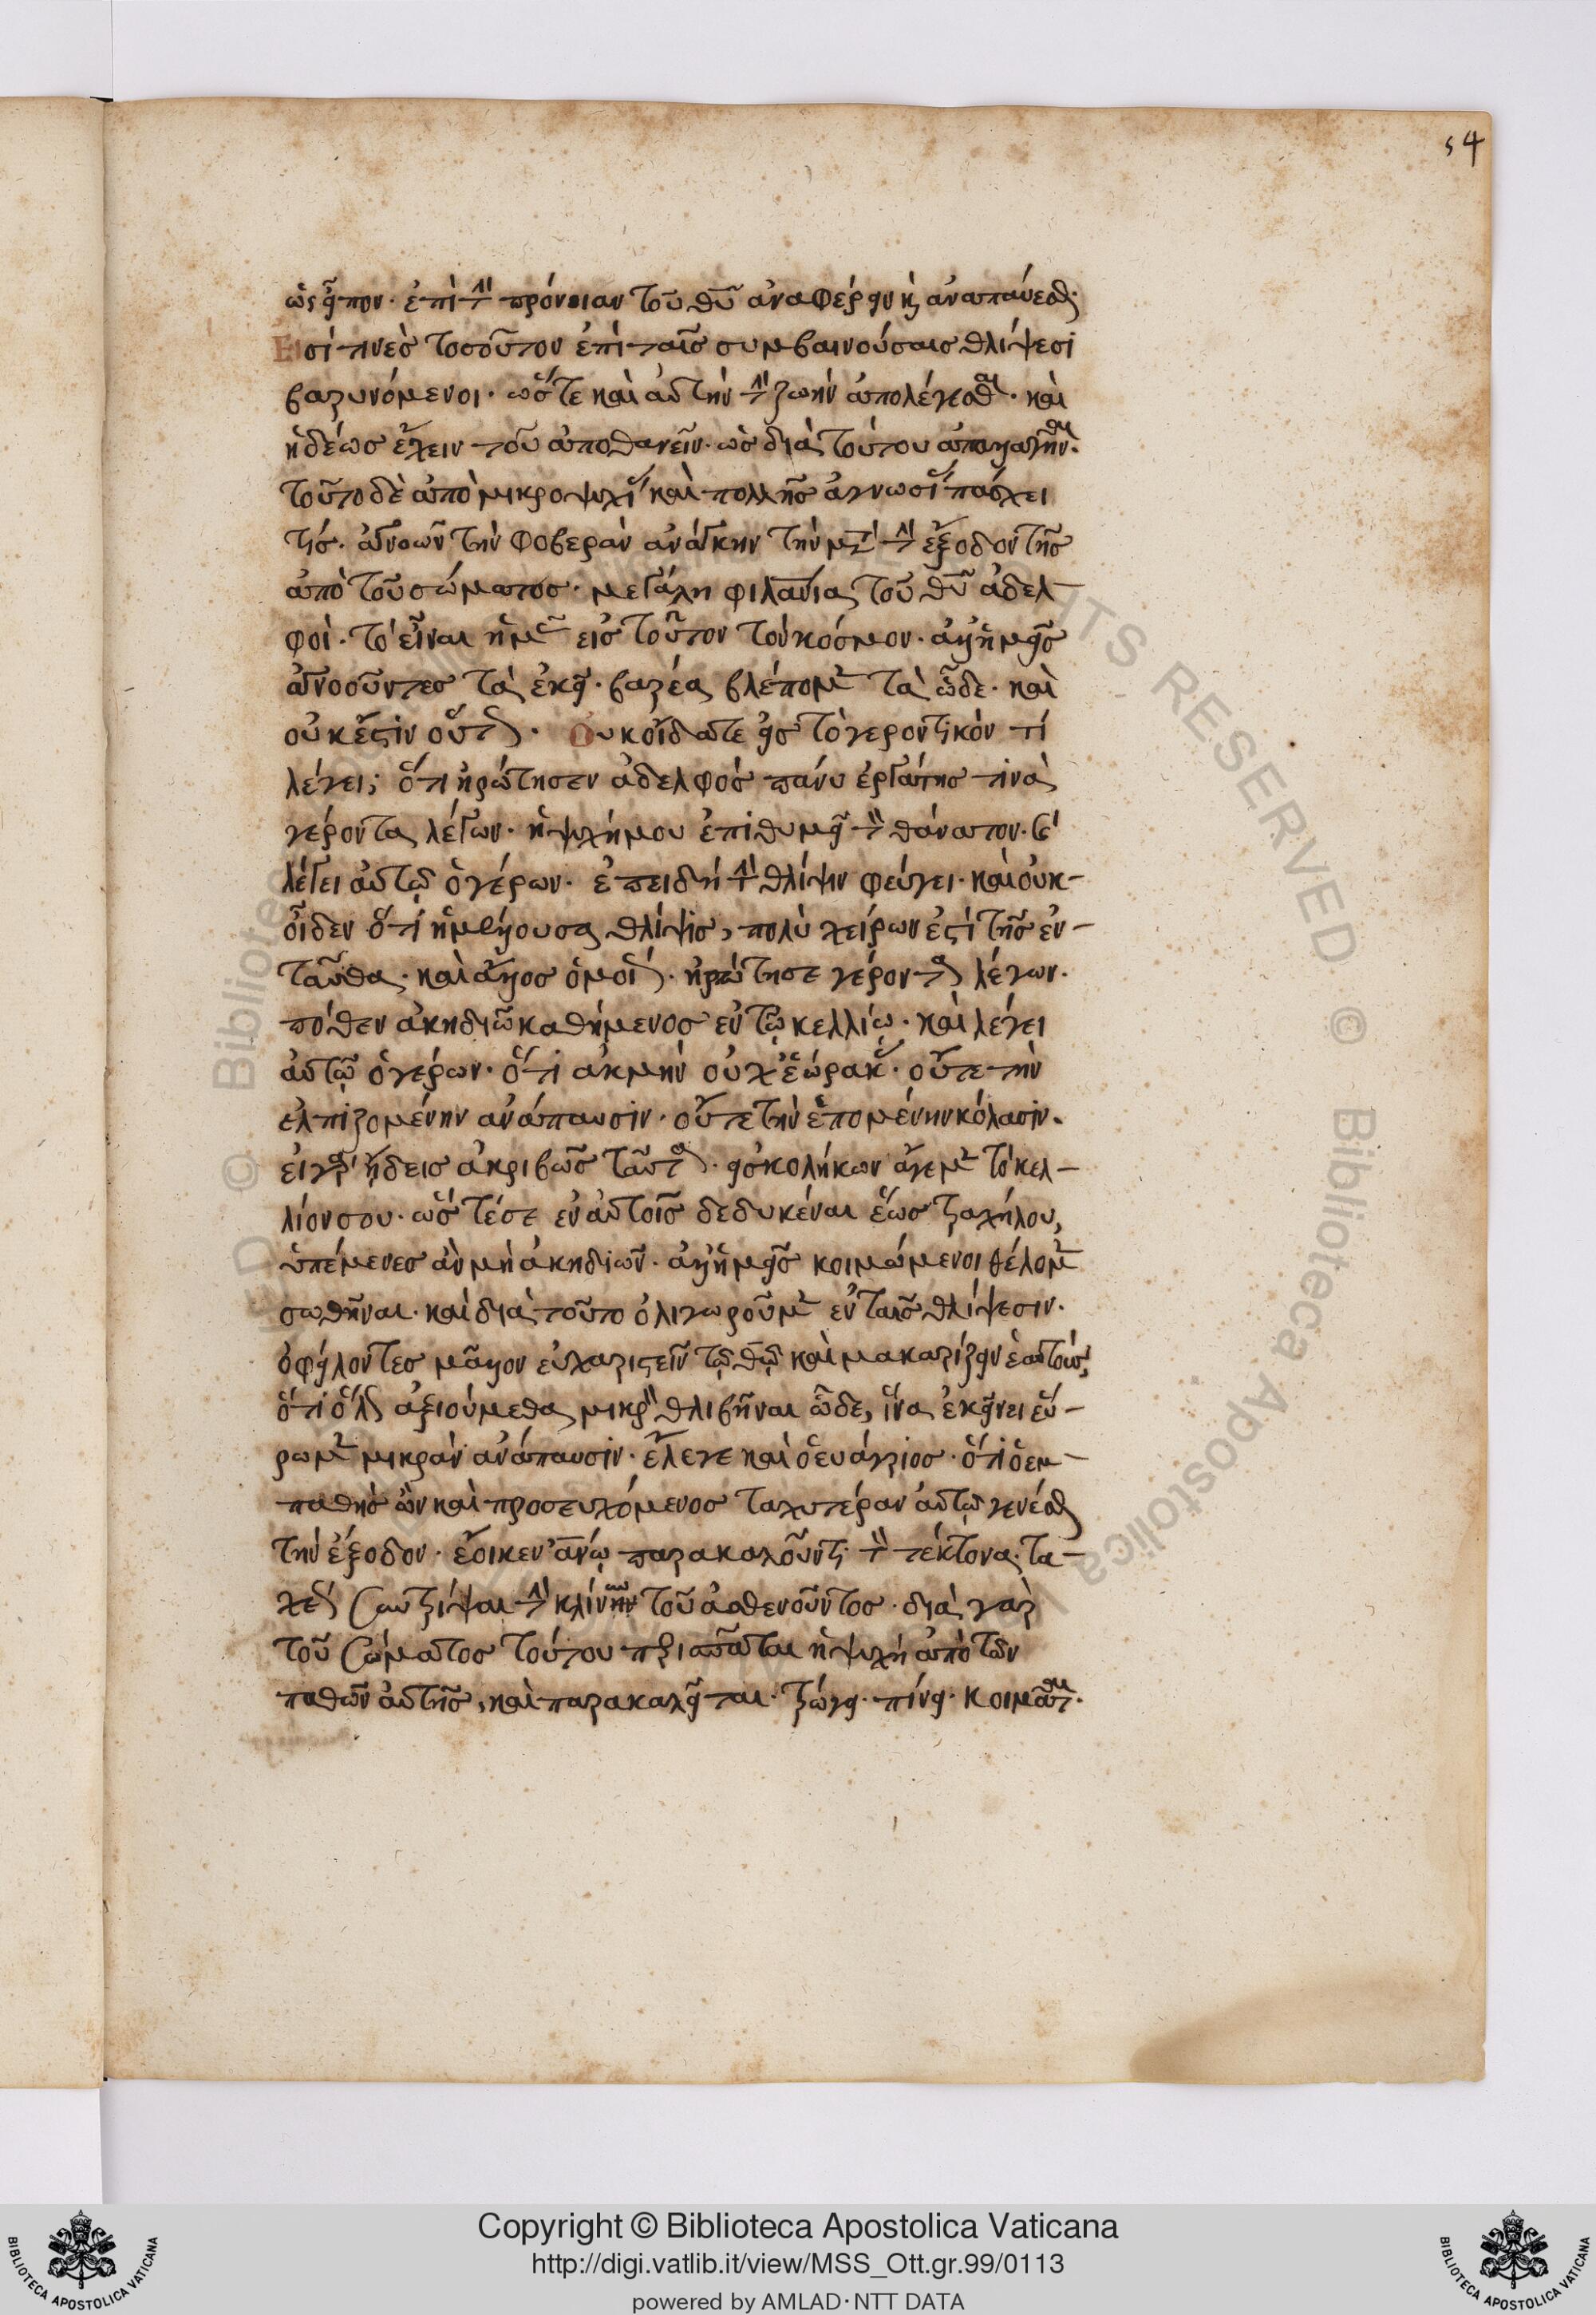 54
ὡς εἶπον· ἐπὶ τὴν πρόνοιαν τοῦ θυ ἀναφέρειν καὶ ἀναπαύεσθαι·
Εἰσί τινες τοσοῦτον ἐπὶ ταῖς συμβαινούσαις θλίψεσι
βαρυνόμενοι· ὥστε καὶ αὐτὴν τὴν ζωὴν ἀπολέγεσθαι· καὶ
ἡδέως ἔχειν τοῦ ἀποθανεῖν· ὡς διὰ τούτου ἀπαλλαγῆναι·
τοῦτο δὲ ἀπὸ μικροψυχίας καὶ πολλῆς ἀγνωσίας πάσχει
τίς· ἀγνοῶν τὴν φοβερὰν ἀνάγκην τὴν μετὰ τὴν ἔξοδον τῆς
ἀπὸ τοῦ σώματος· μεγάλη φιλανια τοῦ θυ ἀδελ-
φοί· τὸ εἶναι ἡμᾶς εἰς τοῦτον τὸν κόσμον· ἀλλ' ἡμεῖς
ἀγνοοῦντες τὰ ἐκεῖ· βαρέα βλέπομεν τὰ ὧδε· καὶ
οὐκ ἔστιν οὕτως· Οὐκ οἴδατε εἰς τὸ γεροντικὸν τί
λέγει; ὅτι ἠρώτησεν ἀδελφὸς πάνυ ἐργάτης τινὰ
γέροντα λέγων· ἡ ψυχή μου ἐπιθυμεῖ τὸν θάνατον· καὶ
λέγει αὐτῷ ὁ γέρων· ἐπειδὴ τὴν θλίψιν φεύγει· καὶ οὐκ-
οἶδεν ὅτι ἡ μέλλουσα θλίψις, πολὺ χείρων ἐστὶ τῆς ἐν-
ταῦθα· καὶ ἄλλος ὁμοίως· ἠρώτησε γέροντα λέγων·
πόθεν ἀκηδιῶ καθήμενος ἐν τῷ κελλίῳ· καὶ λέγει
αὐτῷ ὁ γέρων· ὅτι ἀκμὴν οὐχ ἑώρακας· οὔτε τὴν
ἐλπιζομένην ἀνάπαυσιν· οὔτε τὴν ἑπομένην κόλασιν·
εἰ γὰρ ᾔδεις ἀκριβῶς ταῦτα· εἰ σκολήκων ἔγεμε τὸ κελ-
λίον σου· ὥστέ σε ἐν αὐτοῖς δεδυκέναι ἕως τραχήλου,
ὑπέμενες ἂν μὴ ἀκηδιῶν· ἀλλ' ἡμεῖς κοιμώμενοι θέλομεν
σωθῆναι· καὶ διὰ τοῦτο ὀλιγωροῦμεν ἐν ταῖς θλίψεσιν·
ὀφείλοντες μᾶλλον εὐχαριστεῖν τῷ θῷ καὶ μακαρίζειν ἑαυτούς,
ὅτι ὅλως ἀξιούμεθα μικρὸν θλιβῆναι ὧδε, ἵνα ἐκεῖνει εὕ-
ρωμεν μικρὰν ἀνάπαυσιν· ἔλεγε καὶ ὁ εὐάγριος· ὅτι ὁ ἐμ-
παθὴς ὢν καὶ προσευχόμενος ταχυτέραν αὐτῷ γενέσθαι
τὴν ἔξοδον· ἔοικεν ἀνῳ παρακαλοῦντι τὸν τέκτονα· τα-
χέως συντρίψαι τὴν κλίνην τοῦ ἀσθενοῦντος· διὰ γὰρ
τοῦ σώματος τούτου περισπᾶται ἡ ψυχὴ ἀπὸ τῶν
παθῶν αὐτῆς, καὶ παρακαλεῖται· τρώγει· πίνει· κοιμᾶται·
Copyright © Biblioteca Apostolica Vaticana
http://digi.vatlib.it/view/MSS_Ott.gr.99/0113
powered by AMLAD·NTT DATA